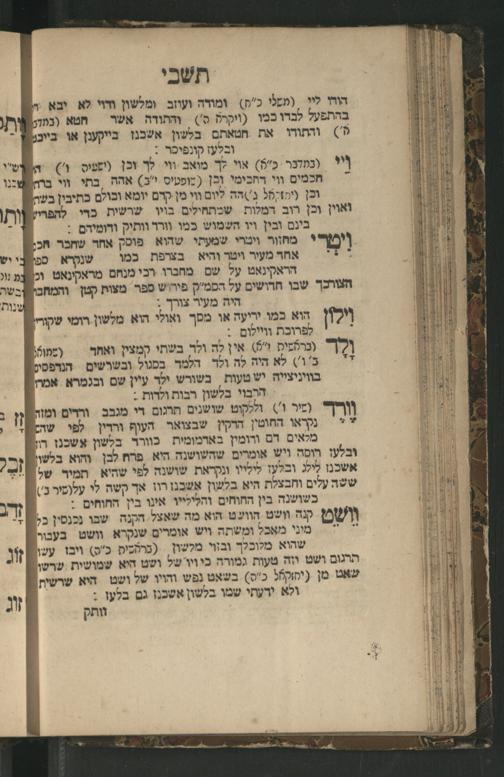 תשבי
הודו ליי (משלי כ״ח) ומודה ועוזב ומלשון ודוי לא יבא רק
בהתפעל לבדו כמו (ויקרא ה׳) והתודה אשר חטא (במדבר
ה׳) והתודו את חטאתם בלשון אשכנז
ובלעז קונפיסר :
וַיי (במדבר כ״א) אוי לך מואב ווי לך וכן
חכמים ווי דחכימי וכן (שופטים י״ב) אהה בתי ווי ברתי
וכן (יחזקאל ג׳) הה ליום ווי מן קדם יומא וכולם כתיבין בשתי
ואוין וכן רוב המלות שמתחילים בויו שרשית כדי להפריש
בינם ובין ויו השמוש כמו וורד וותיק ודומיהם :
וִיטְרִי מחזור ויטרי שמעתי שהוא פוסק אחד שחבר
אחד מעיר ויטר והיא בצרפת כמו שנקרא ספר
הראקינאט על שם מחברו רבי מנחם מראקינאט וכן
הצורכך שבו חדושים על הסמ״ק פירוש ספר מצות קטן והמחבר
היה מעיר צורך :
וִילוֹן הוא כמו יריעה או מסך ואולי הוא מלשון רומי שקורין
לפרוכת וויילום :
וָלָד (בראשית י״א) אין לה ולד בשתי קמצין ואחד
לא היה לה ולד הלמד בסגול ובשרשים הנדפסים
בוויניצייה יש טעות בשורש ילד עיין שם ובגמרא אמרו
הרבוי בלשון רבות ולדות :
וֶורֶד (שיר ו׳) וללקוט שושנים תרגום ורדים ומזה
נקראו החוטין הדקין שבצואר העוף ורדין לפי שהם
מלאים דם ודומין באדמומית כוורד בלשון אשכנז רוז
ובלעז רוסה ויש אומרים שהשושנה היא פרח לבן והוא בלשון
אשכנז לילג ובלעז לילייו ונקראת שושנה לפי שהיא תמיד של
ששה עלים וחבצלת היא בלשון אשכנז רוז אך קשה לי על (שיר ב׳)
כשושנה בין החוחים והלילייו אינו בין החוחים :
וֵושֶט קנה וושט הוושט הוא מה שאצל הקנה שבו נכנסין כל
מיני מאכל ומשתה ויש אומרים שנקרא וושט בעבור
שהוא מלוכלך ובזוי מלשון (בראשית כ״ה) ויבז עשו
תרגום ושט וזה טעות גמורה כי ויו של ושט היא שמושית שרשו
שאט מן (יחזקאל כ״ה) בשאט נפש והויו של ושט היא שרשית
ולא ידעתי שמו בלשון אשכנז גם בלעז :
וותק